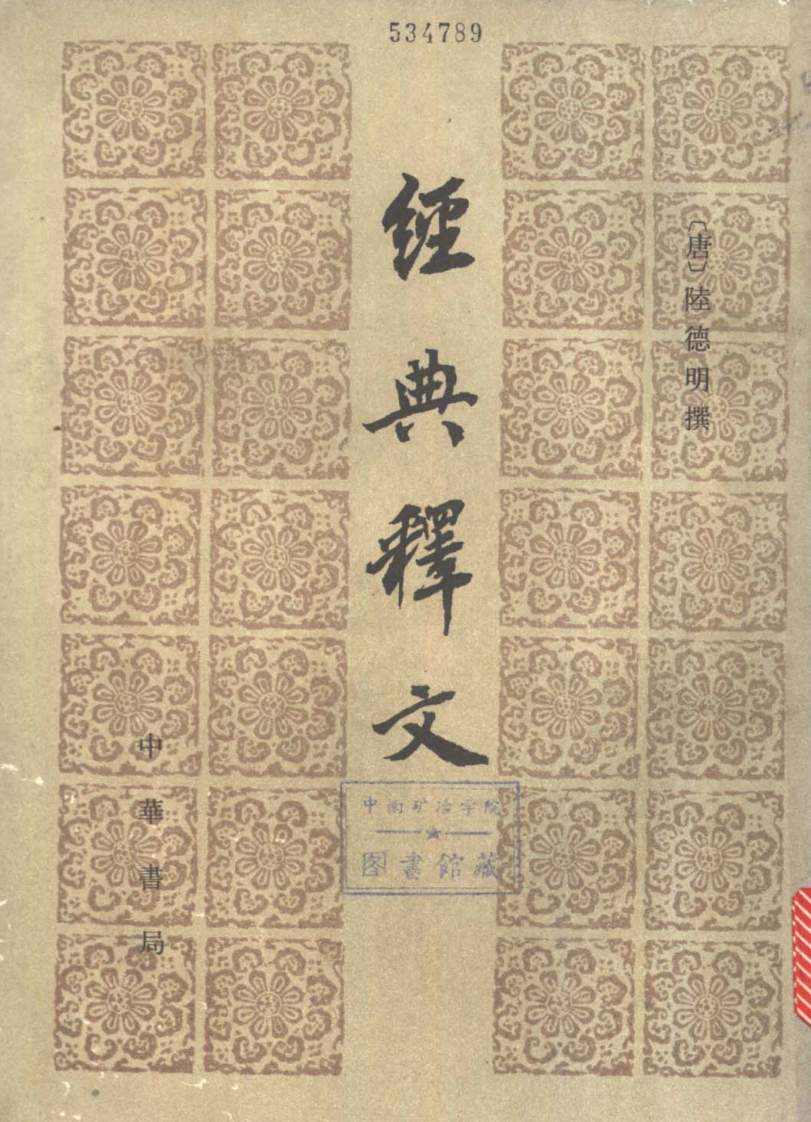 534789
〔唐〕陸德明撰
經典釋文
中華書局
中南矿冶学院
图書館藏